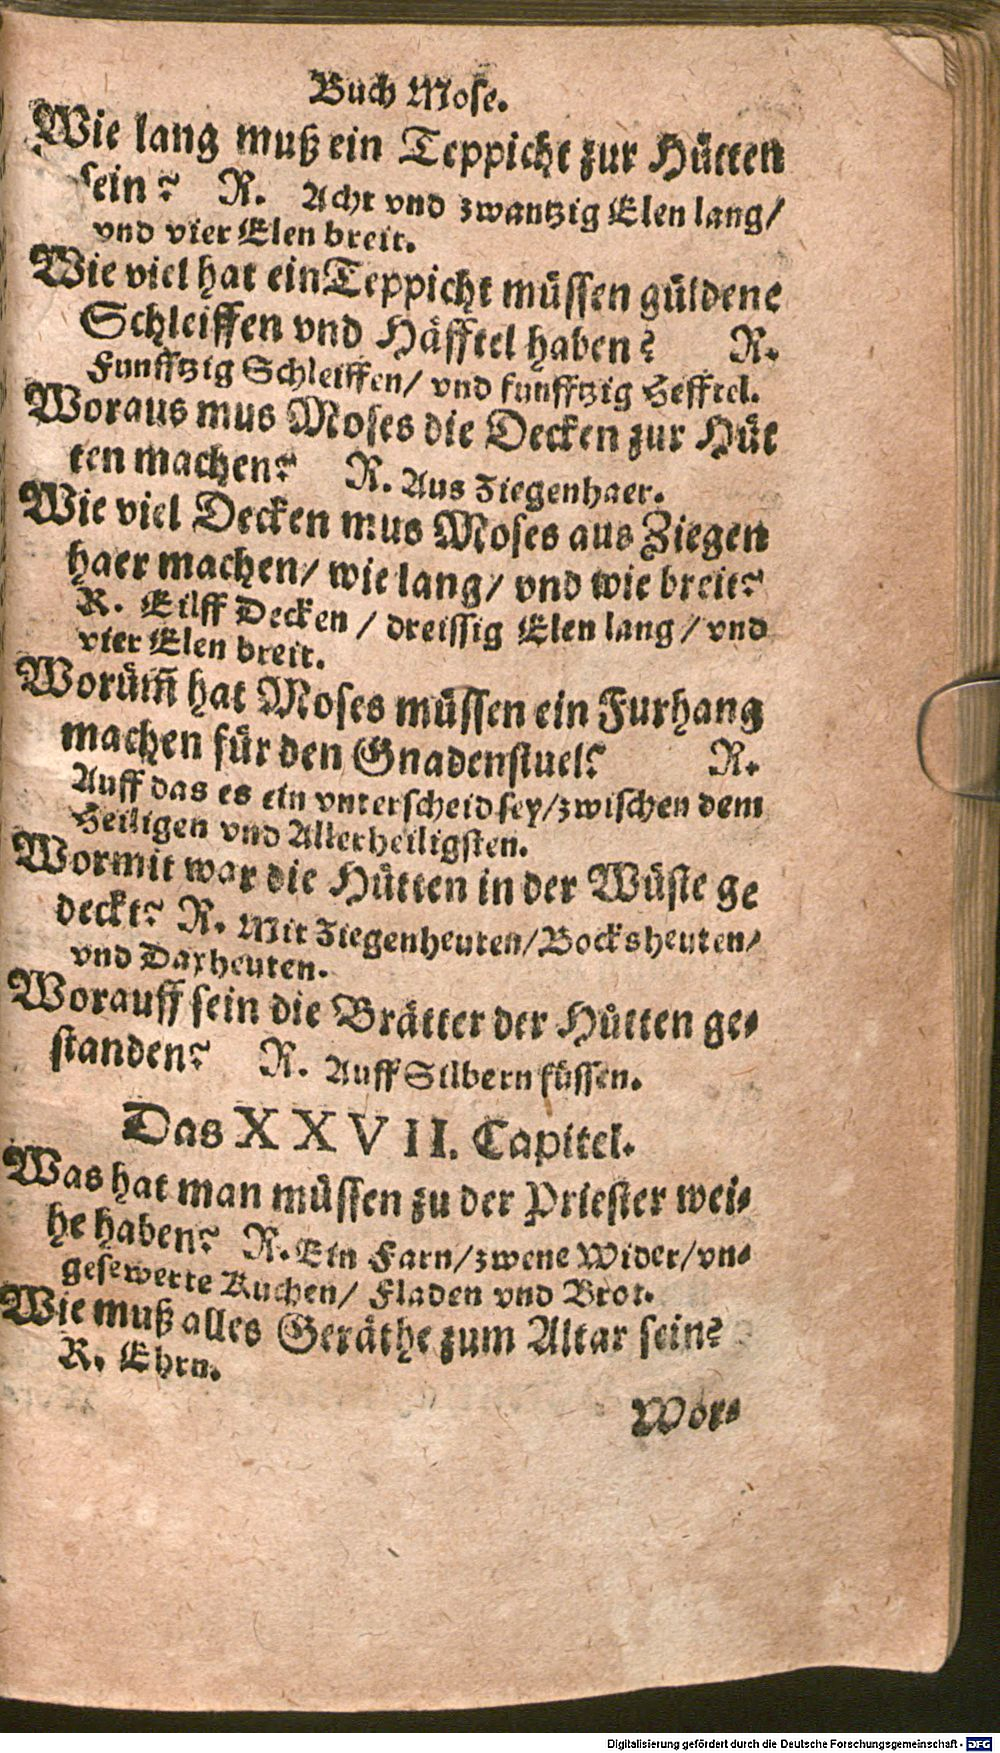 Buch Mose.
Wie lang muß ein Teppicht zur Hütten
sein? R. Acht vnd zwantzig Elen lang/
vnd vier Elen breit.
Wie viel hat ein Teppicht müssen güldene
Schleiffen vnd Häfftel haben? R.
Funfftzig Schleiffen/ vnd funfftzig Hefftel.
Woraus mus Moses die Decken zur Hüt
ten machen? R. Aus Ziegenhaer.
Wie viel Decken mus Moses aus Ziegen
haer machen/ wie lang/ vnd wie breit?
R. Eilff Decken / dreissig Elen lang / vnd
vier Elen breit.
Worüm̃ hat Moses müssen ein Furhang
machen für den Gnadenstuel? R.
Auff das es ein vnterscheid sey/zwischen dem
Heiligen vnd Allerheiligsten.
Wormit war die Hütten in der Wüste ge
deckt? R. Mit Ziegenheuten/Bocksheuten/
vnd Daxheuten.
Worauff sein die Brätter der Hütten ge-
standen? R. Auff Silbern füssen.
Das XXVII. Capitel.
Was hat man müssen zu der Priester wei-
he haben? R. Ein Farn/zwene Wider/vn-
gesewerte Kuchen/ Fladen vnd Brot.
Wie muß alles Geräthe zum Altar sein?
R. Ehrn.
Wor-
Digitalisierung gefördert durch die Deutsche Forschungsgemeinschaft - DFG